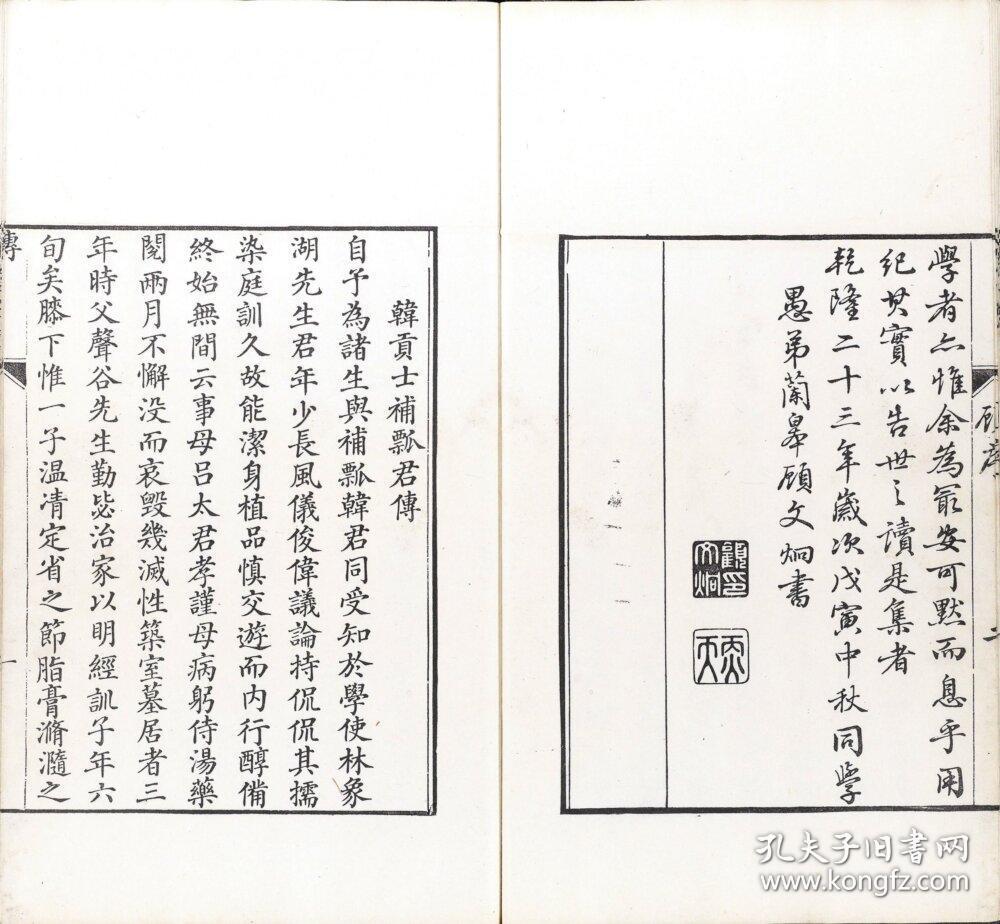 學者亦惟余為最安可默而息乎用
紀其實以告世之讀是集者
乾隆二十三年歲次戊寅中秋同學
愚弟蘭皋顧文炯書
顧序
二
韓貢士補瓢君傳
自予為諸生與補瓢韓君同受知於學使林象
湖先生君年少長風儀俊偉議論持侃侃其擩
染庭訓久故能潔身植品慎交遊而內行醇備
終始無間云事母呂太君孝謹母病躬侍湯藥
閱兩月不懈没而哀毀幾滅性築室墓居者三
年時父聲谷先生勤毖治家以明經訓子年六
旬矣膝下惟一子温凊定省之節脂膏滫瀡之
傳
一
孔夫子旧书网
www.kongfz.com